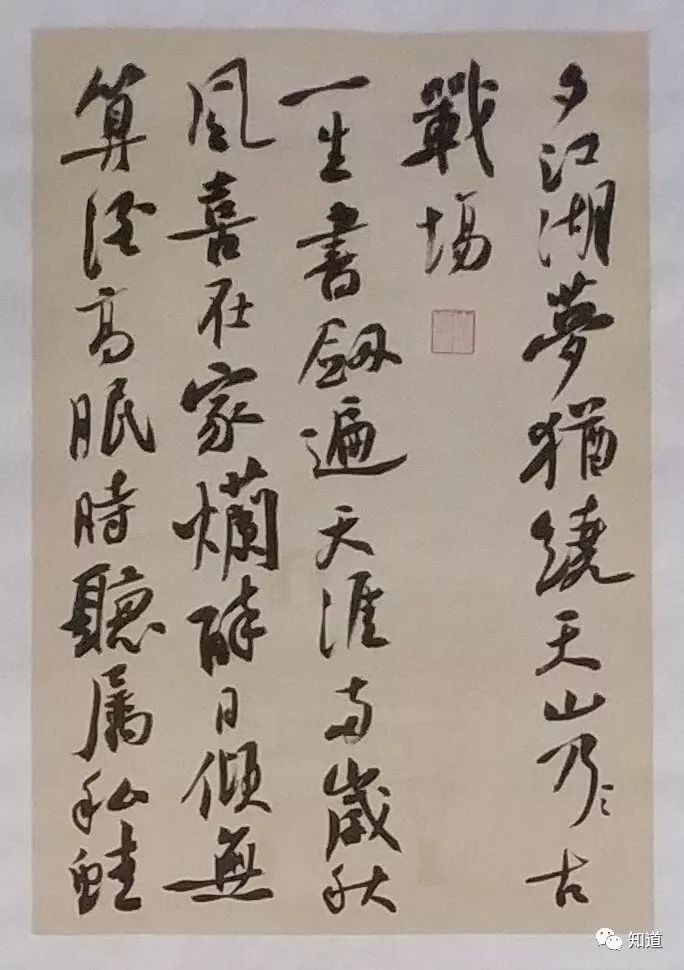 夕江湖夢猶繞天山乃古
戰場
一生書劔遍天涯兩歲秋
風喜在家爛醉日傾無
算酒高眠時聽屬私蛙
知道